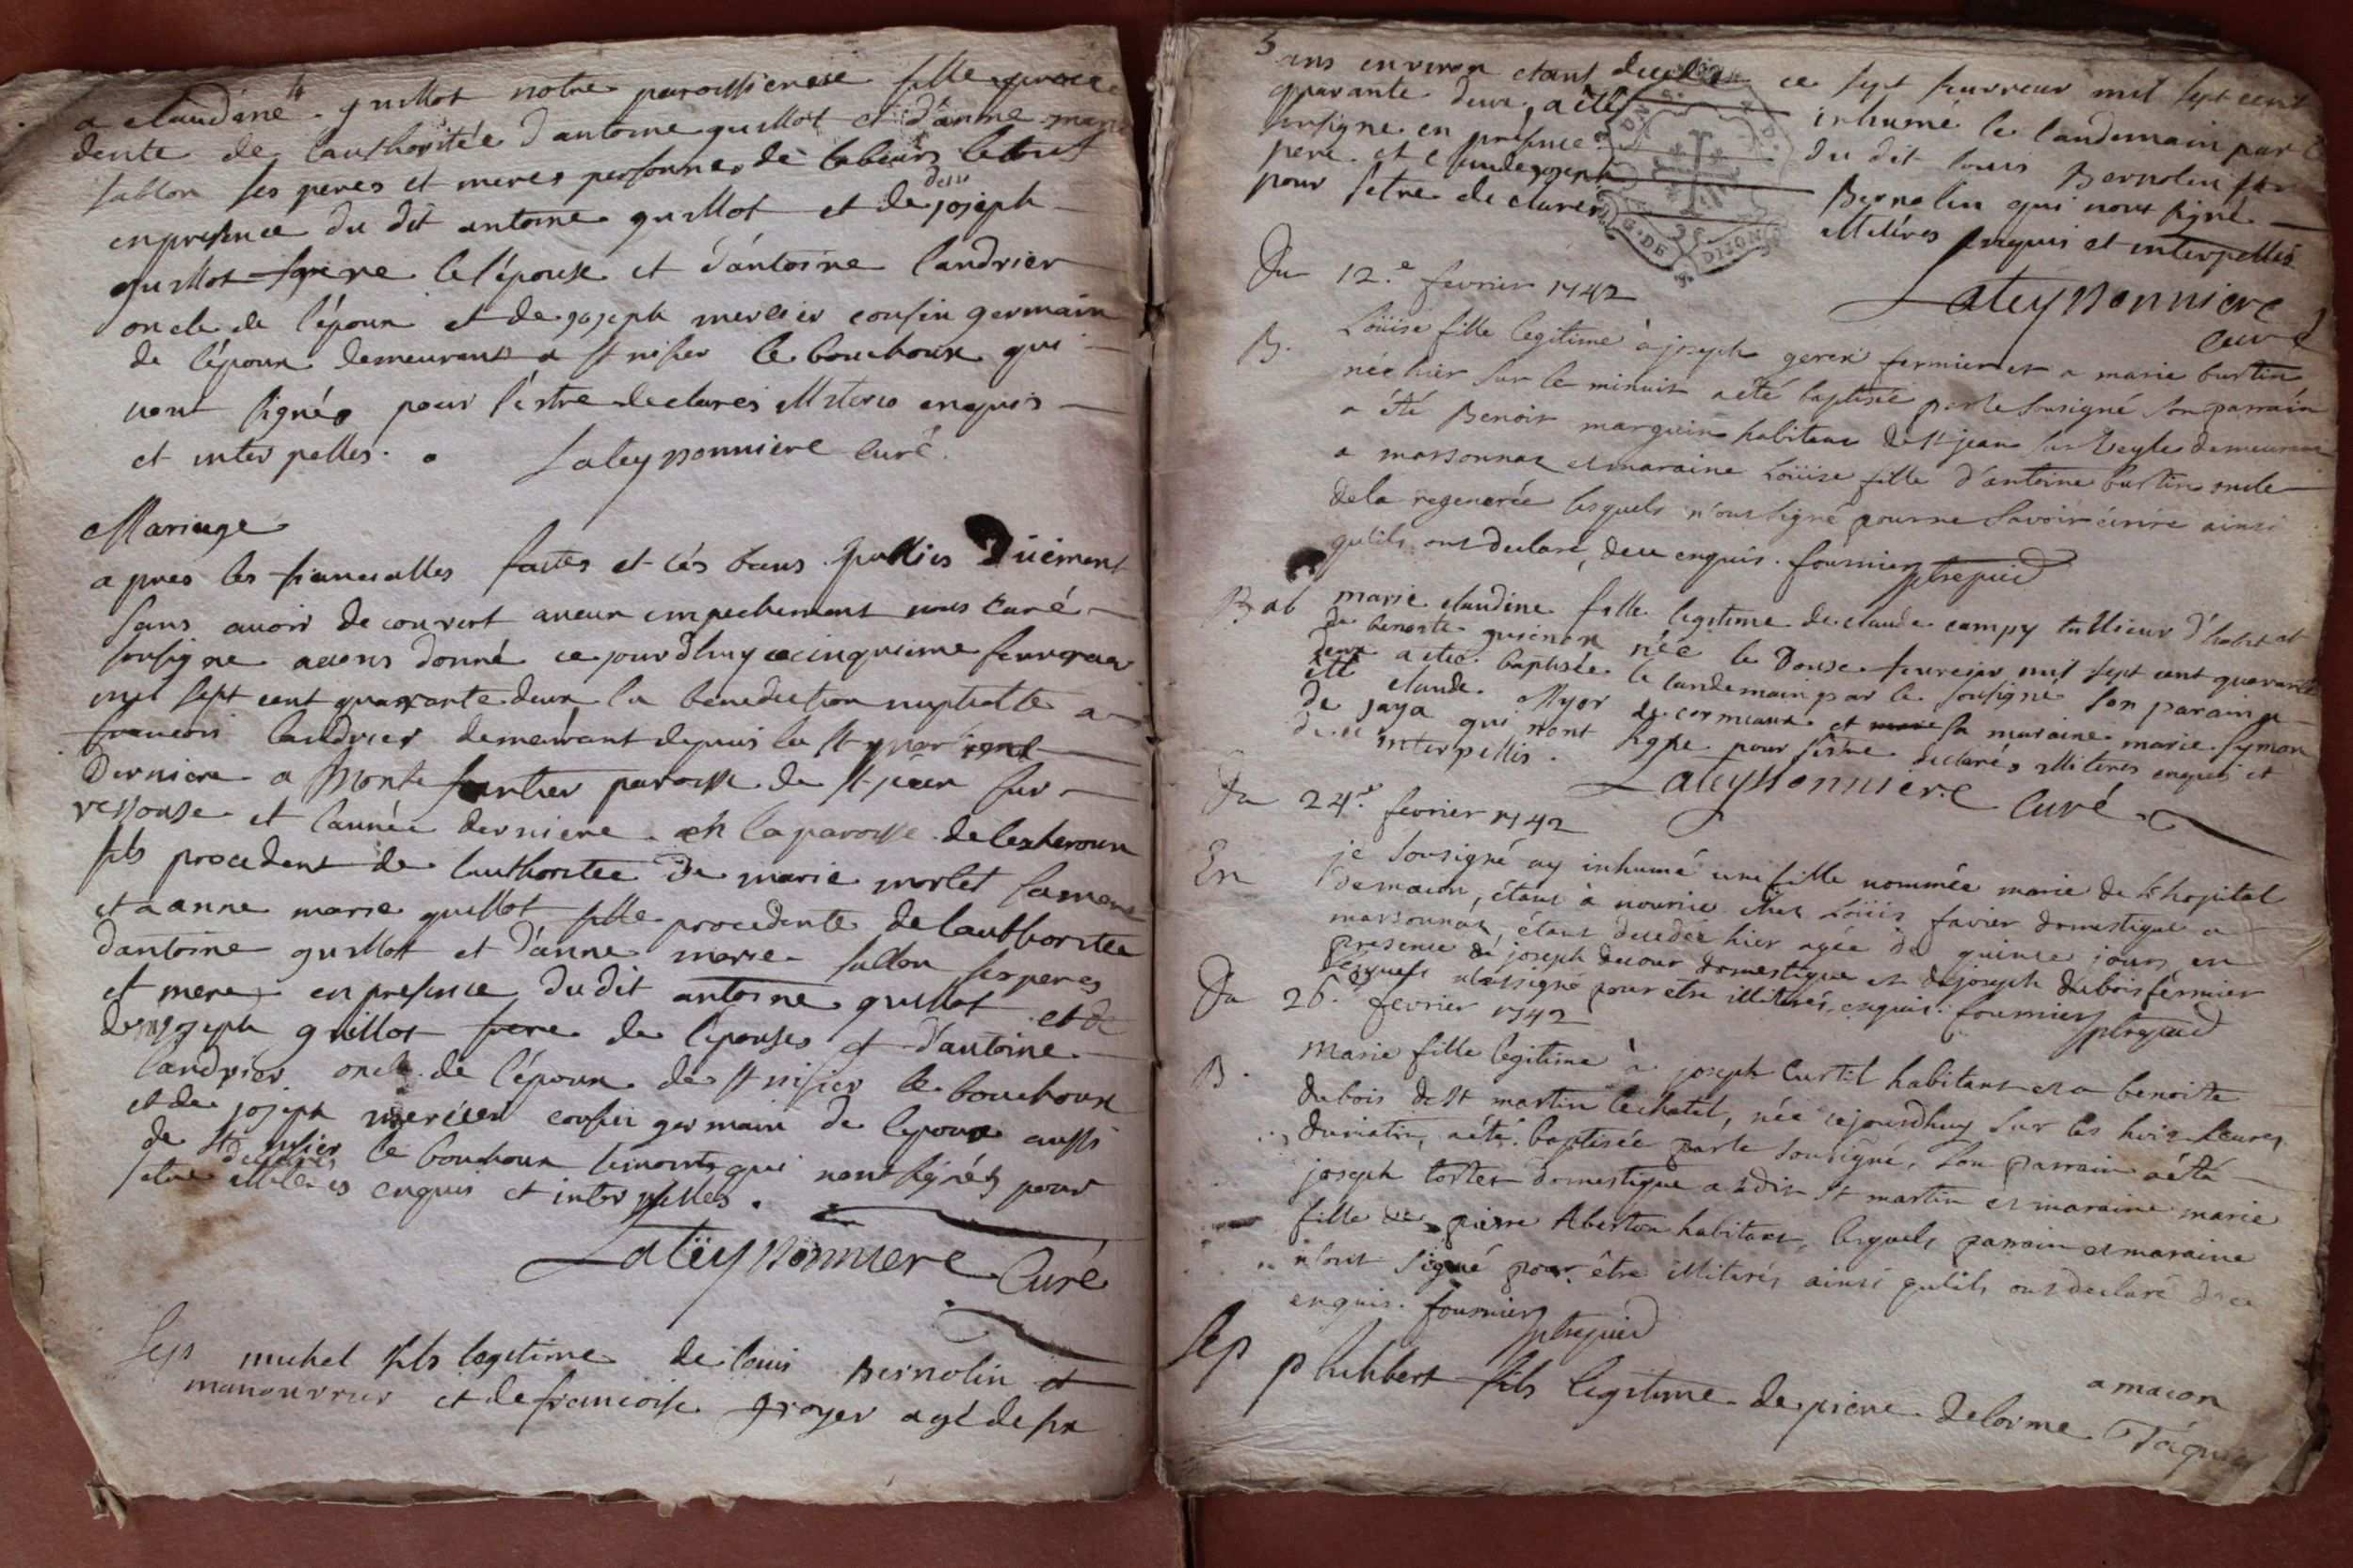 a claudine guillot notre paroissienese fille proce
dente de l'authoritée d'antoine guillot et d'anne marie
sallon ses peres et meres personnes de labeurs le tout
en presence du dit antoine guillot et de joseph
guillot frere de l'épouse et d'antoine landrier
oncle de l'époux et de joseph mercier cousin germain
de l'époux demeurant a st nisier le bouchoux qui
nont signés pour l'estre declarés illiteres enquis
et interpelles. Lateyssonniere curé.
Mariage
apres les fiancialles faites et les bans publies Düement
sans avoir decouvert aucun empechement nous curé
soussigne avons donné ce jourdhuy cinquieme feuvrier
mil sept cent quarante deux la benediction nuptialle a
francois landrier demeurant depuis la st
derniere a Monte paroisse de st jean sur
ressouse et l'année derniere en la paroisse de lescheroux
fils procedent de l'authoritée de marie morlet sa mere
et a anne marie guillot fille procedente de l'authoritée
d'antoine guillot et d'anne marie sallon ses peres
et mere en presence du dit antoine guillot et de
joseph guillot frere de l'épouse et d'antoine
landrier oncle de l'époux de st nisier le bouchoux
et de joseph mercier cousin germain de l'epoux aussi
de st nisier le bouchoux temoints qui nont signés pour
setre declarés illiteres enquis et interpelles.
Lateÿssonniere Curé
Sep michel fils legitime de louis Bernolin et
manouvrier et de francoise proyer agé de six
ans environ etant decedé ce sept feuvrier mil sept cent
quarante deux, a été inhumé le landemain par le
sousigne en presence du dit louis Bernolin
pere et claude joseph Bernolin qui nont signé
pour setre declarés illitéres enquis et interpellés
Lateyssonniere
curé
Du 12.e fevrier 1742
B. Loüise fille legitime à joseph gerex fermier et a marie burtin
née hier sur le minuit a été baptisée par le sousigné son parrain
a été Benoit marguin habitant de st jean sur Veyle demeurant
a marsonnaz et maraine Loüise fille d'antoine burtin oncle
de la regenerée lesquels n'ont signé pour ne savoir écrire ainsi
qu'ils ont declaré, deue enquis. fournier
Bab marie claudine fille legitime de claude campy tallieur d'habit et
de benoite née le Douse feuvrier mil sept cent quarante
deux a eté baptisée le landemain par le sousigné son parain a
été claude Myor de cormeaux et sa maraine marie symon
de jaya qui nont signe pour sestre declarés illiteres enquis et
interpellés. Lateyssonniere Curé
Du 24.e fevrier 1742
En je sousigné ay inhumé une fille nommée marie de l'hopital
de macon, étant à nourrice chez Loüis favier domestique a
marsonnaz, étant decedée hier agée de quinze jours, en
presence de joseph ducour domestique et de joseph dubois fermier
lesquels n'ont signé pour etre illiterés, enquis. fournier
Du 26. fevrier 1742
B. Marie fille legitime à joseph Curtil habitant et a benoite
dubois de st martin le chatel, née cejourdhuy sur les huit heures
du matin, a été baptisée par le sousigné, son parrain a été
joseph tortet domestique audit st martin et maraine marie
fille de pierre Aberton habitant, lesquels parrain et maraine
n'ont signé pour être illiterés ainsi qu'ils ont declaré
enquis. fournier
Sep philibert fils legitime de pierre delorme
a macon